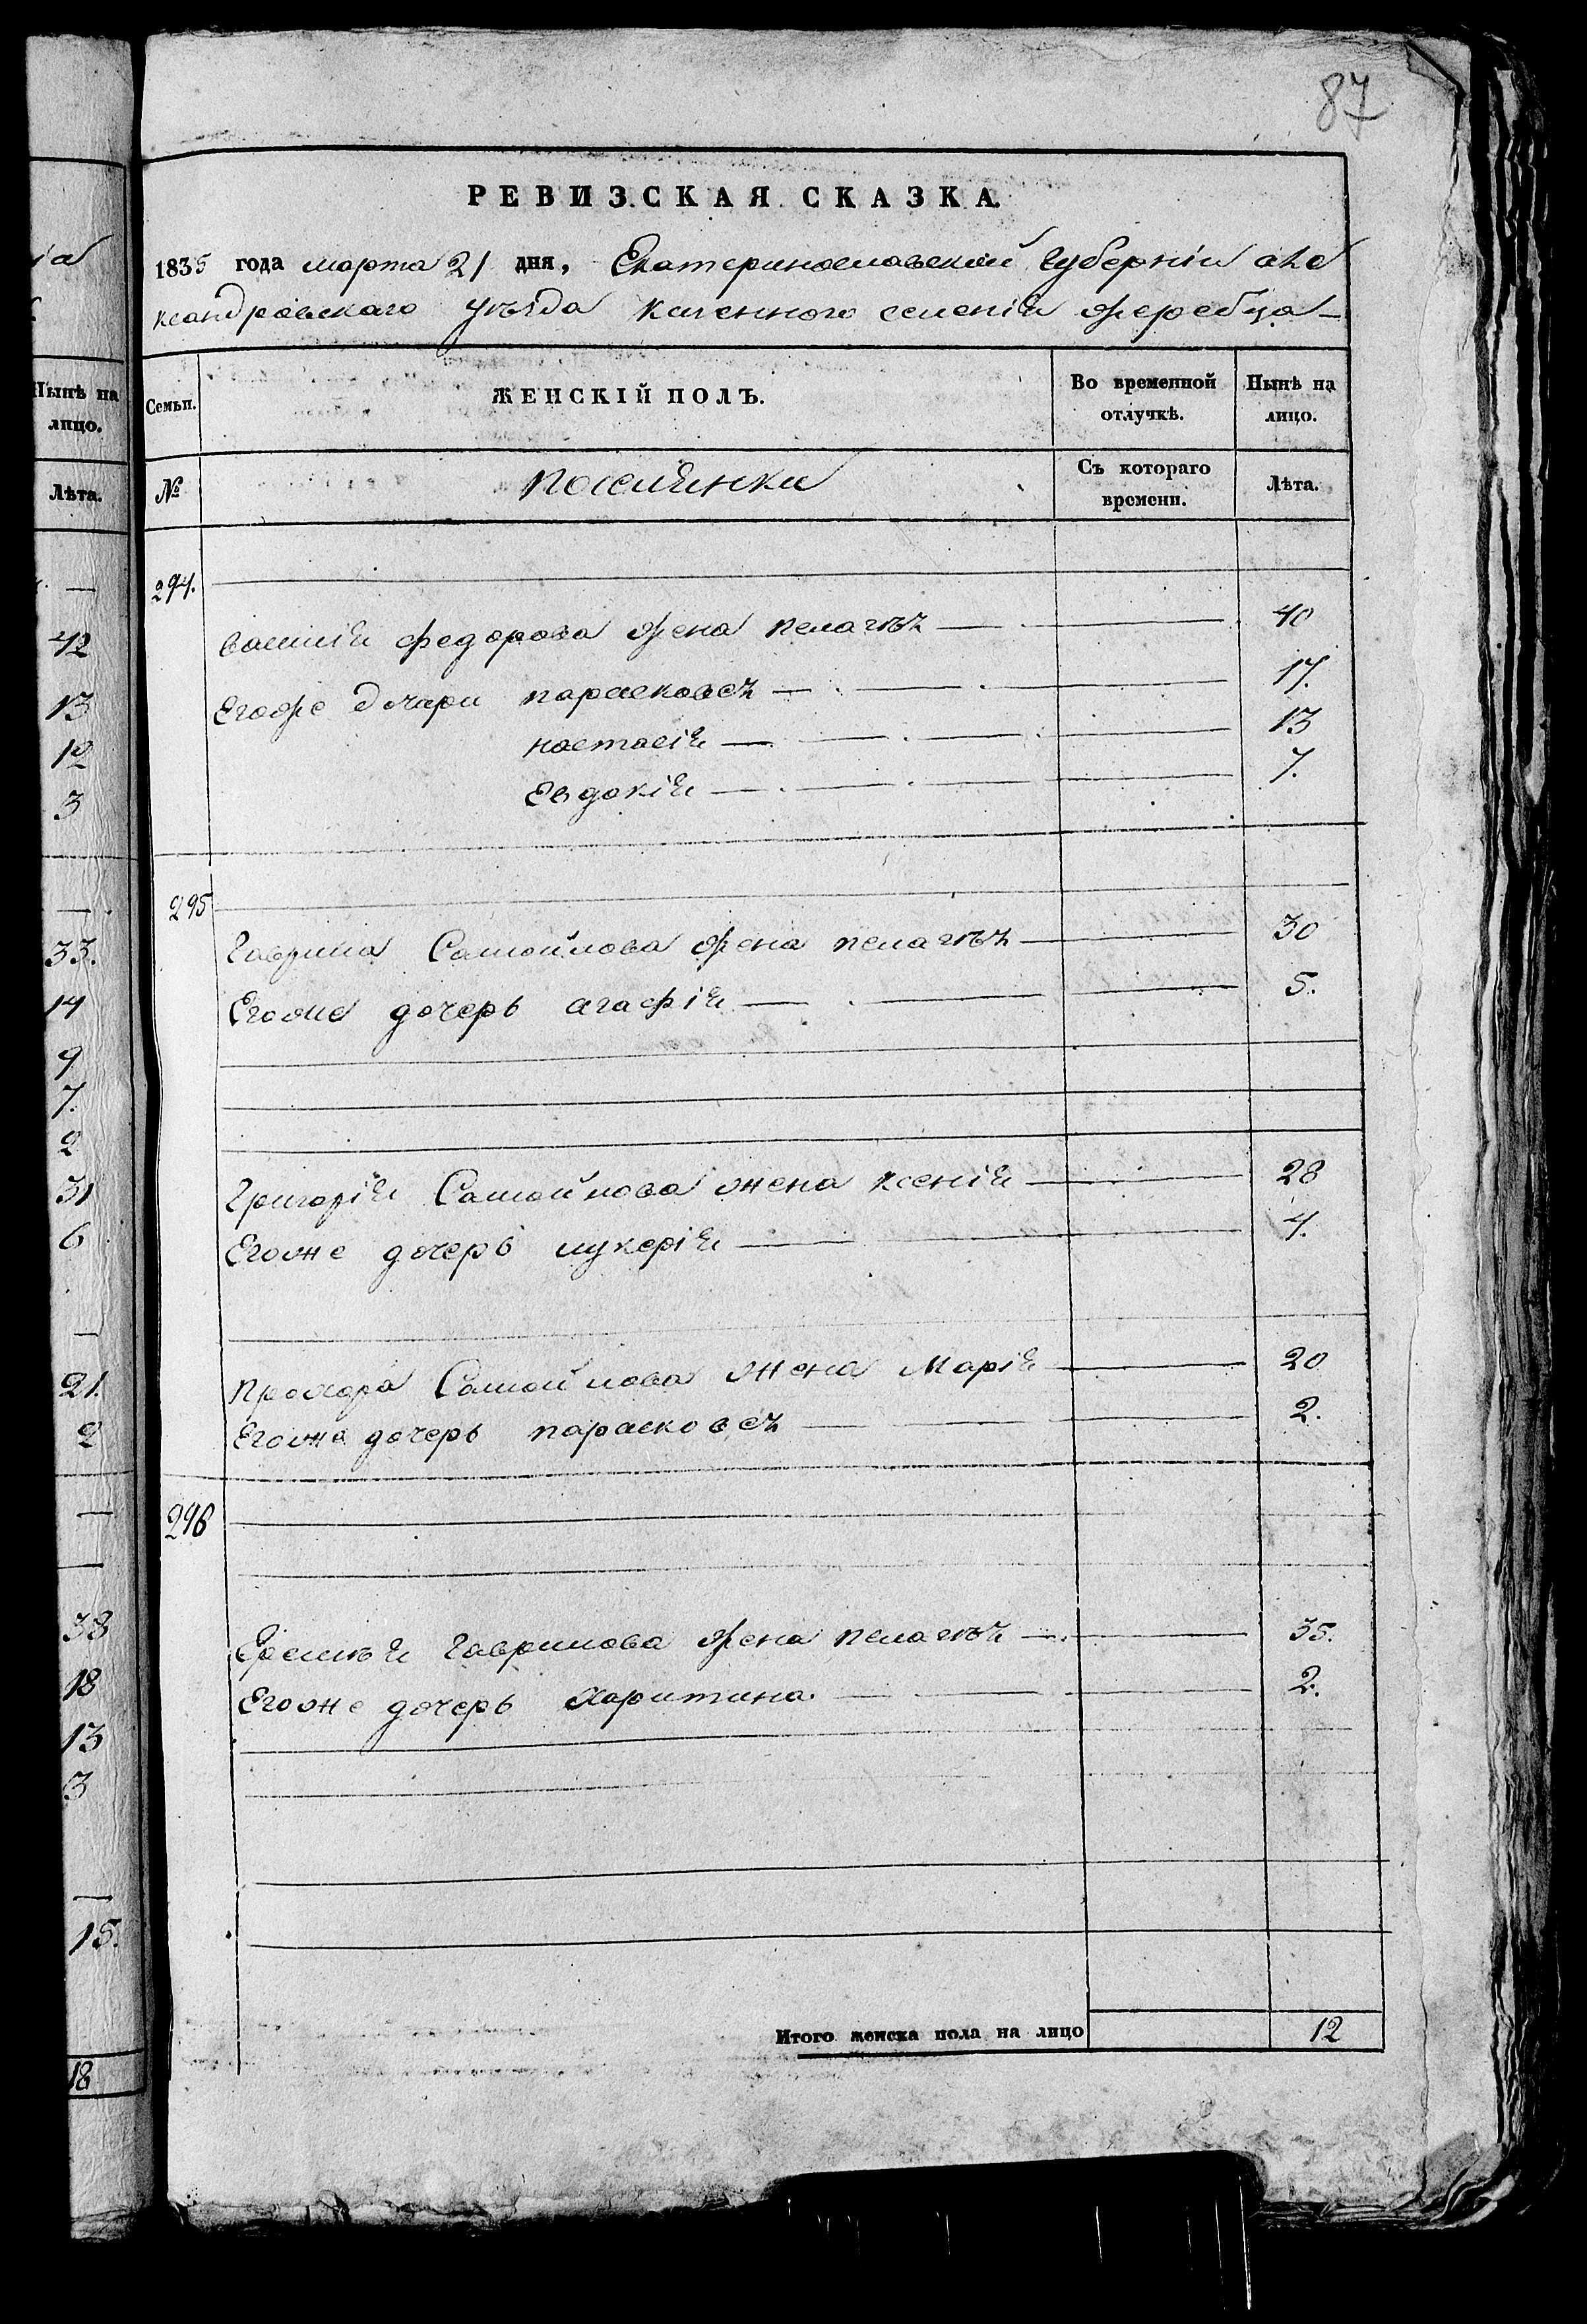 87
РЕВИЗСКАЯ СКАЗКА.
1835 года марта 21 дня, Екатеринославской губерніи але
ксандровскаго уѣзда казенного селенія жеребца
Семьи. ЖЕНСКІЙ ПОЛЪ. Во временной отлучкѣ. Нынѣ на лицо.
№ поселянки Съ котораго времени. Лѣта.
294.
василія федорова жена пелагѣя 40
Егоже дочери парасковея 17.
настасія 13
Евдокія 7.
295
Гаврила Самойлова жена пелагѣя 30
Егоже дочерь агафія 5.
Григорія Самойлова жена ксенія 28
Егоже дочерь лукерія 4.
прохора Самойлова жена Марія 20
Егоже дочерь парасковея 2.
296
Еремѣя гаврилова жена пелагѣя 35.
Егоже дочерь харитина. 2.
Итого женска пола на лицо 12
Нынѣ на
лицо.
Лѣта.
42
13
12
3
33.
14
9
7.
2
31
6
21.
2
38
18
13
3
15.
18